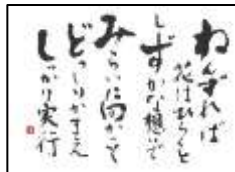 ねんずれば
花はひらくと
しずかな想いで
みらいに向かって
どっしりかまえ
しっかり実行